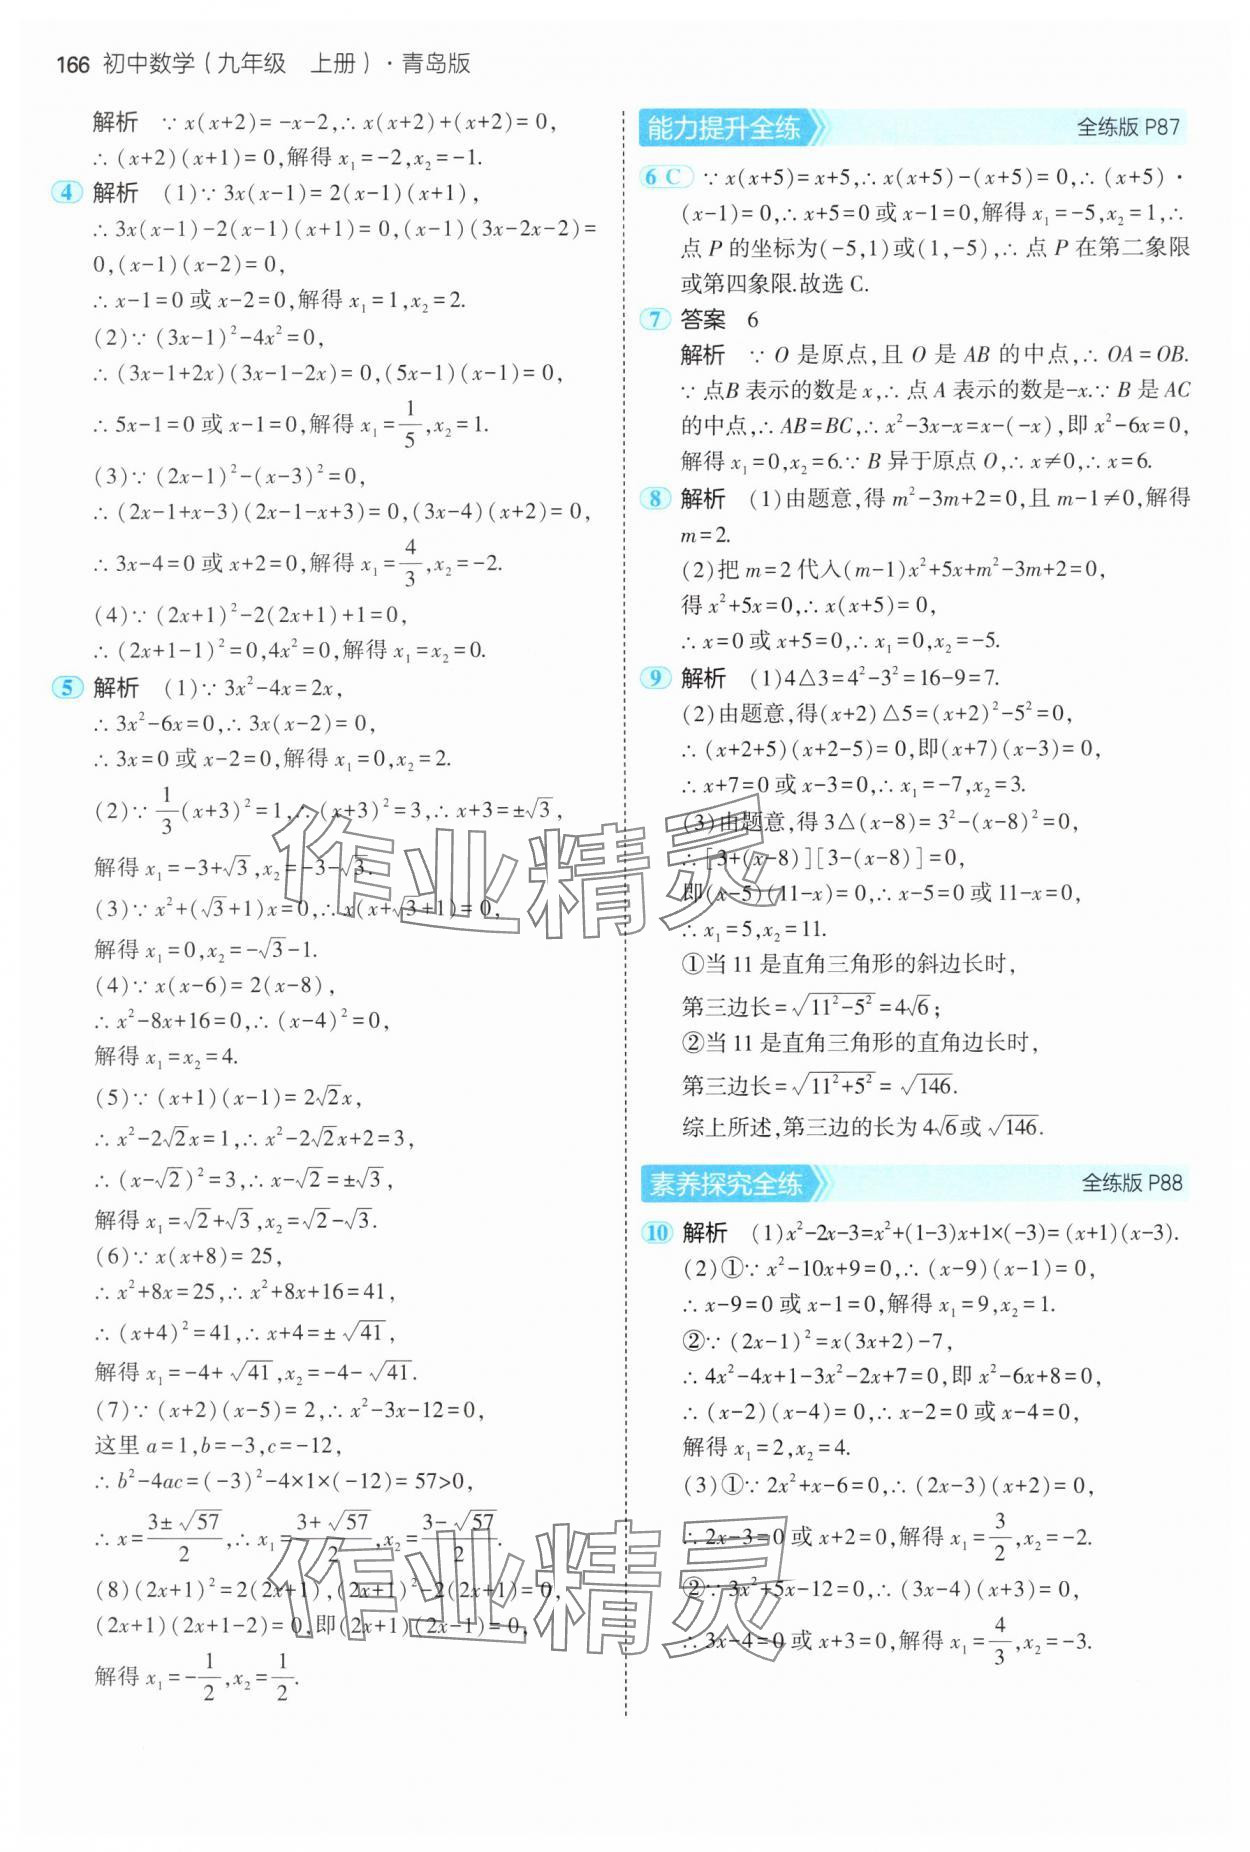 166 初中数学(九年级 上册)·青岛版
解析 ∵ x(x+2)=-x-2,∴ x(x+2)+(x+2)=0,
∴ (x+2)(x+1)=0,解得 x₁=-2,x₂=-1.
4 解析 (1)∵ 3x(x-1)=2(x-1)(x+1),
∴ 3x(x-1)-2(x-1)(x+1)=0,(x-1)(3x-2x-2)=
0,(x-1)(x-2)=0,
∴ x-1=0 或 x-2=0,解得 x₁=1,x₂=2.
(2)∵ (3x-1)²-4x²=0,
∴ (3x-1+2x)(3x-1-2x)=0,(5x-1)(x-1)=0,
∴ 5x-1=0 或 x-1=0,解得 x₁=1/5,x₂=1.
(3)∵ (2x-1)²-(x-3)²=0,
∴ (2x-1+x-3)(2x-1-x+3)=0,(3x-4)(x+2)=0,
∴ 3x-4=0 或 x+2=0,解得 x₁=4/3,x₂=-2.
(4)∵ (2x+1)²-2(2x+1)+1=0,
∴ (2x+1-1)²=0,4x²=0,解得 x₁=x₂=0.
5 解析 (1)∵ 3x²-4x=2x,
∴ 3x²-6x=0,∴ 3x(x-2)=0,
∴ 3x=0 或 x-2=0,解得 x₁=0,x₂=2.
(2)∵ 1/3(x+3)²=1,∴ (x+3)²=3,∴ x+3=±√3,
解得 x₁=-3+√3,x₂=-3-√3.
(3)∵ x²+(√3+1)x=0,∴ x(x+√3+1)=0,
解得 x₁=0,x₂=-√3-1.
(4)∵ x(x-6)=2(x-8),
∴ x²-8x+16=0,∴ (x-4)²=0,
解得 x₁=x₂=4.
(5)∵ (x+1)(x-1)=2√2x,
∴ x²-2√2x=1,∴ x²-2√2x+2=3,
∴ (x-√2)²=3,∴ x-√2=±√3,
解得 x₁=√2+√3,x₂=√2-√3.
(6)∵ x(x+8)=25,
∴ x²+8x=25,∴ x²+8x+16=41,
∴ (x+4)²=41,∴ x+4=±√41,
解得 x₁=-4+√41,x₂=-4-√41.
(7)∵ (x+2)(x-5)=2,∴ x²-3x-12=0,
这里 a=1,b=-3,c=-12,
∴ b²-4ac=(-3)²-4×1×(-12)=57>0,
∴ x=(3±√57)/2,∴ x₁=(3+√57)/2,x₂=(3-√57)/2.
(8)(2x+1)²=2(2x+1),(2x+1)²-2(2x+1)=0,
(2x+1)(2x+1-2)=0,即(2x+1)(2x-1)=0,
解得 x₁=-1/2,x₂=1/2.
能力提升全练 全练版 P87
6 C ∵ x(x+5)=x+5,∴ x(x+5)-(x+5)=0,∴ (x+5)·
(x-1)=0,∴ x+5=0 或 x-1=0,解得 x₁=-5,x₂=1,∴
点 P 的坐标为(-5,1)或(1,-5),∴ 点 P 在第二象限
或第四象限.故选 C.
7 答案 6
解析 ∵ O 是原点,且 O 是 AB 的中点,∴ OA=OB.
∵ 点B 表示的数是 x,∴ 点 A 表示的数是-x.∵ B 是 AC
的中点,∴ AB=BC,∴ x²-3x-x=x-(-x),即 x²-6x=0,
解得 x₁=0,x₂=6.∵ B 异于原点 O,∴ x≠0,∴ x=6.
8 解析 (1)由题意,得 m²-3m+2=0,且 m-1≠0,解得
m=2.
(2)把 m=2 代入(m-1)x²+5x+m²-3m+2=0,
得 x²+5x=0,∴ x(x+5)=0,
∴ x=0 或 x+5=0,∴ x₁=0,x₂=-5.
9 解析 (1)4△3=4²-3²=16-9=7.
(2)由题意,得(x+2)△5=(x+2)²-5²=0,
∴ (x+2+5)(x+2-5)=0,即(x+7)(x-3)=0,
∴ x+7=0 或 x-3=0,∴ x₁=-7,x₂=3.
(3)由题意,得 3△(x-8)=3²-(x-8)²=0,
∴ [3+(x-8)][3-(x-8)]=0,
即(x-5)(11-x)=0,∴ x-5=0 或 11-x=0,
∴ x₁=5,x₂=11.
①当 11 是直角三角形的斜边长时,
第三边长=√(11²-5²)=4√6;
②当 11 是直角三角形的直角边长时,
第三边长=√(11²+5²)=√146.
综上所述,第三边的长为 4√6或√146.
素养探究全练 全练版 P88
10 解析 (1)x²-2x-3=x²+(1-3)x+1×(-3)=(x+1)(x-3).
(2)①∵ x²-10x+9=0,∴ (x-9)(x-1)=0,
∴ x-9=0 或 x-1=0,解得 x₁=9,x₂=1.
②∵ (2x-1)²=x(3x+2)-7,
∴ 4x²-4x+1-3x²-2x+7=0,即 x²-6x+8=0,
∴ (x-2)(x-4)=0,∴ x-2=0 或 x-4=0,
解得 x₁=2,x₂=4.
(3)①∵ 2x²+x-6=0,∴ (2x-3)(x+2)=0,
∴ 2x-3=0 或 x+2=0,解得 x₁=3/2,x₂=-2.
②∵ 3x²+5x-12=0,∴ (3x-4)(x+3)=0,
∴ 3x-4=0 或 x+3=0,解得 x₁=4/3,x₂=-3.
作业精灵
作业精灵